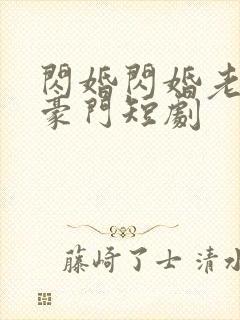 閃婚閃婚老
豪門短劇
藤崎了士 清水